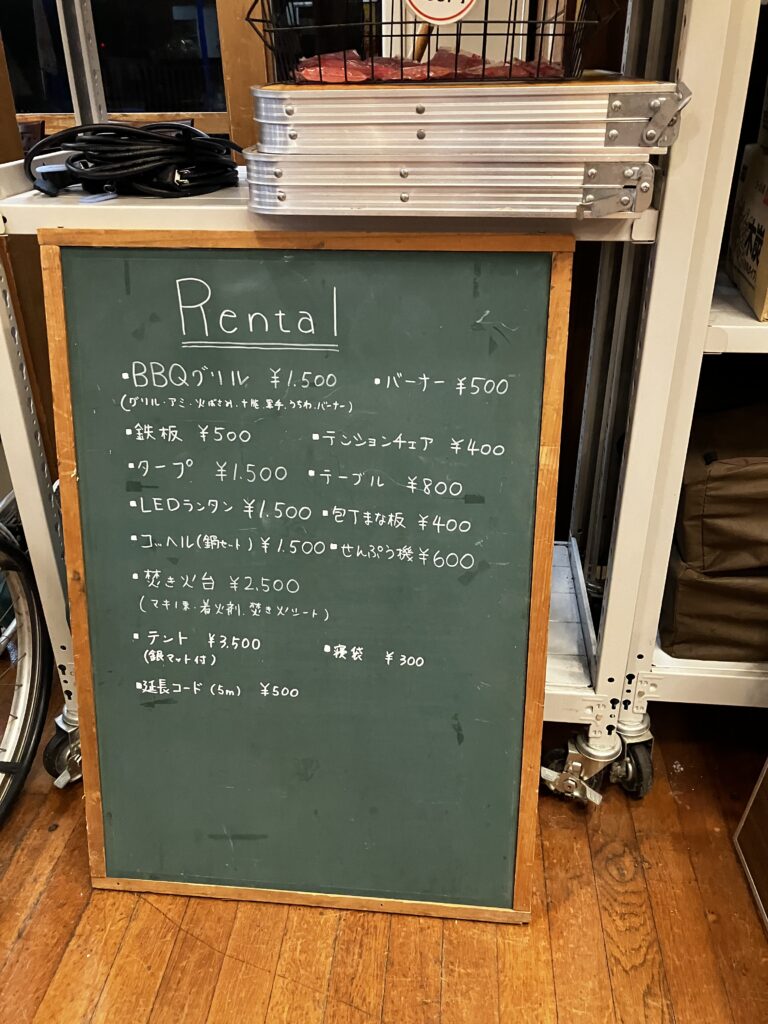 Rental
▪BBQグリル ¥1.500 ▪バーナー ¥500
(グリル・アミ・火ばさみ・十能・軍手・うちわ・バーナー)
▪鉄板 ¥500 ▪テンションチェア ¥400
▪タープ ¥1.500 ▪テーブル ¥800
▪LEDランタン ¥1.500 ▪包丁まな板 ¥400
▪コッヘル(鍋セット) ¥1.500 ▪せんぷう機 ¥600
▪焚き火台 ¥2,500
(マキ1束・着火剤・焚き火シート)
▪テント ¥3,500 ▪寝袋 ¥300
(銀マット付)
▪延長コード (5m) ¥500